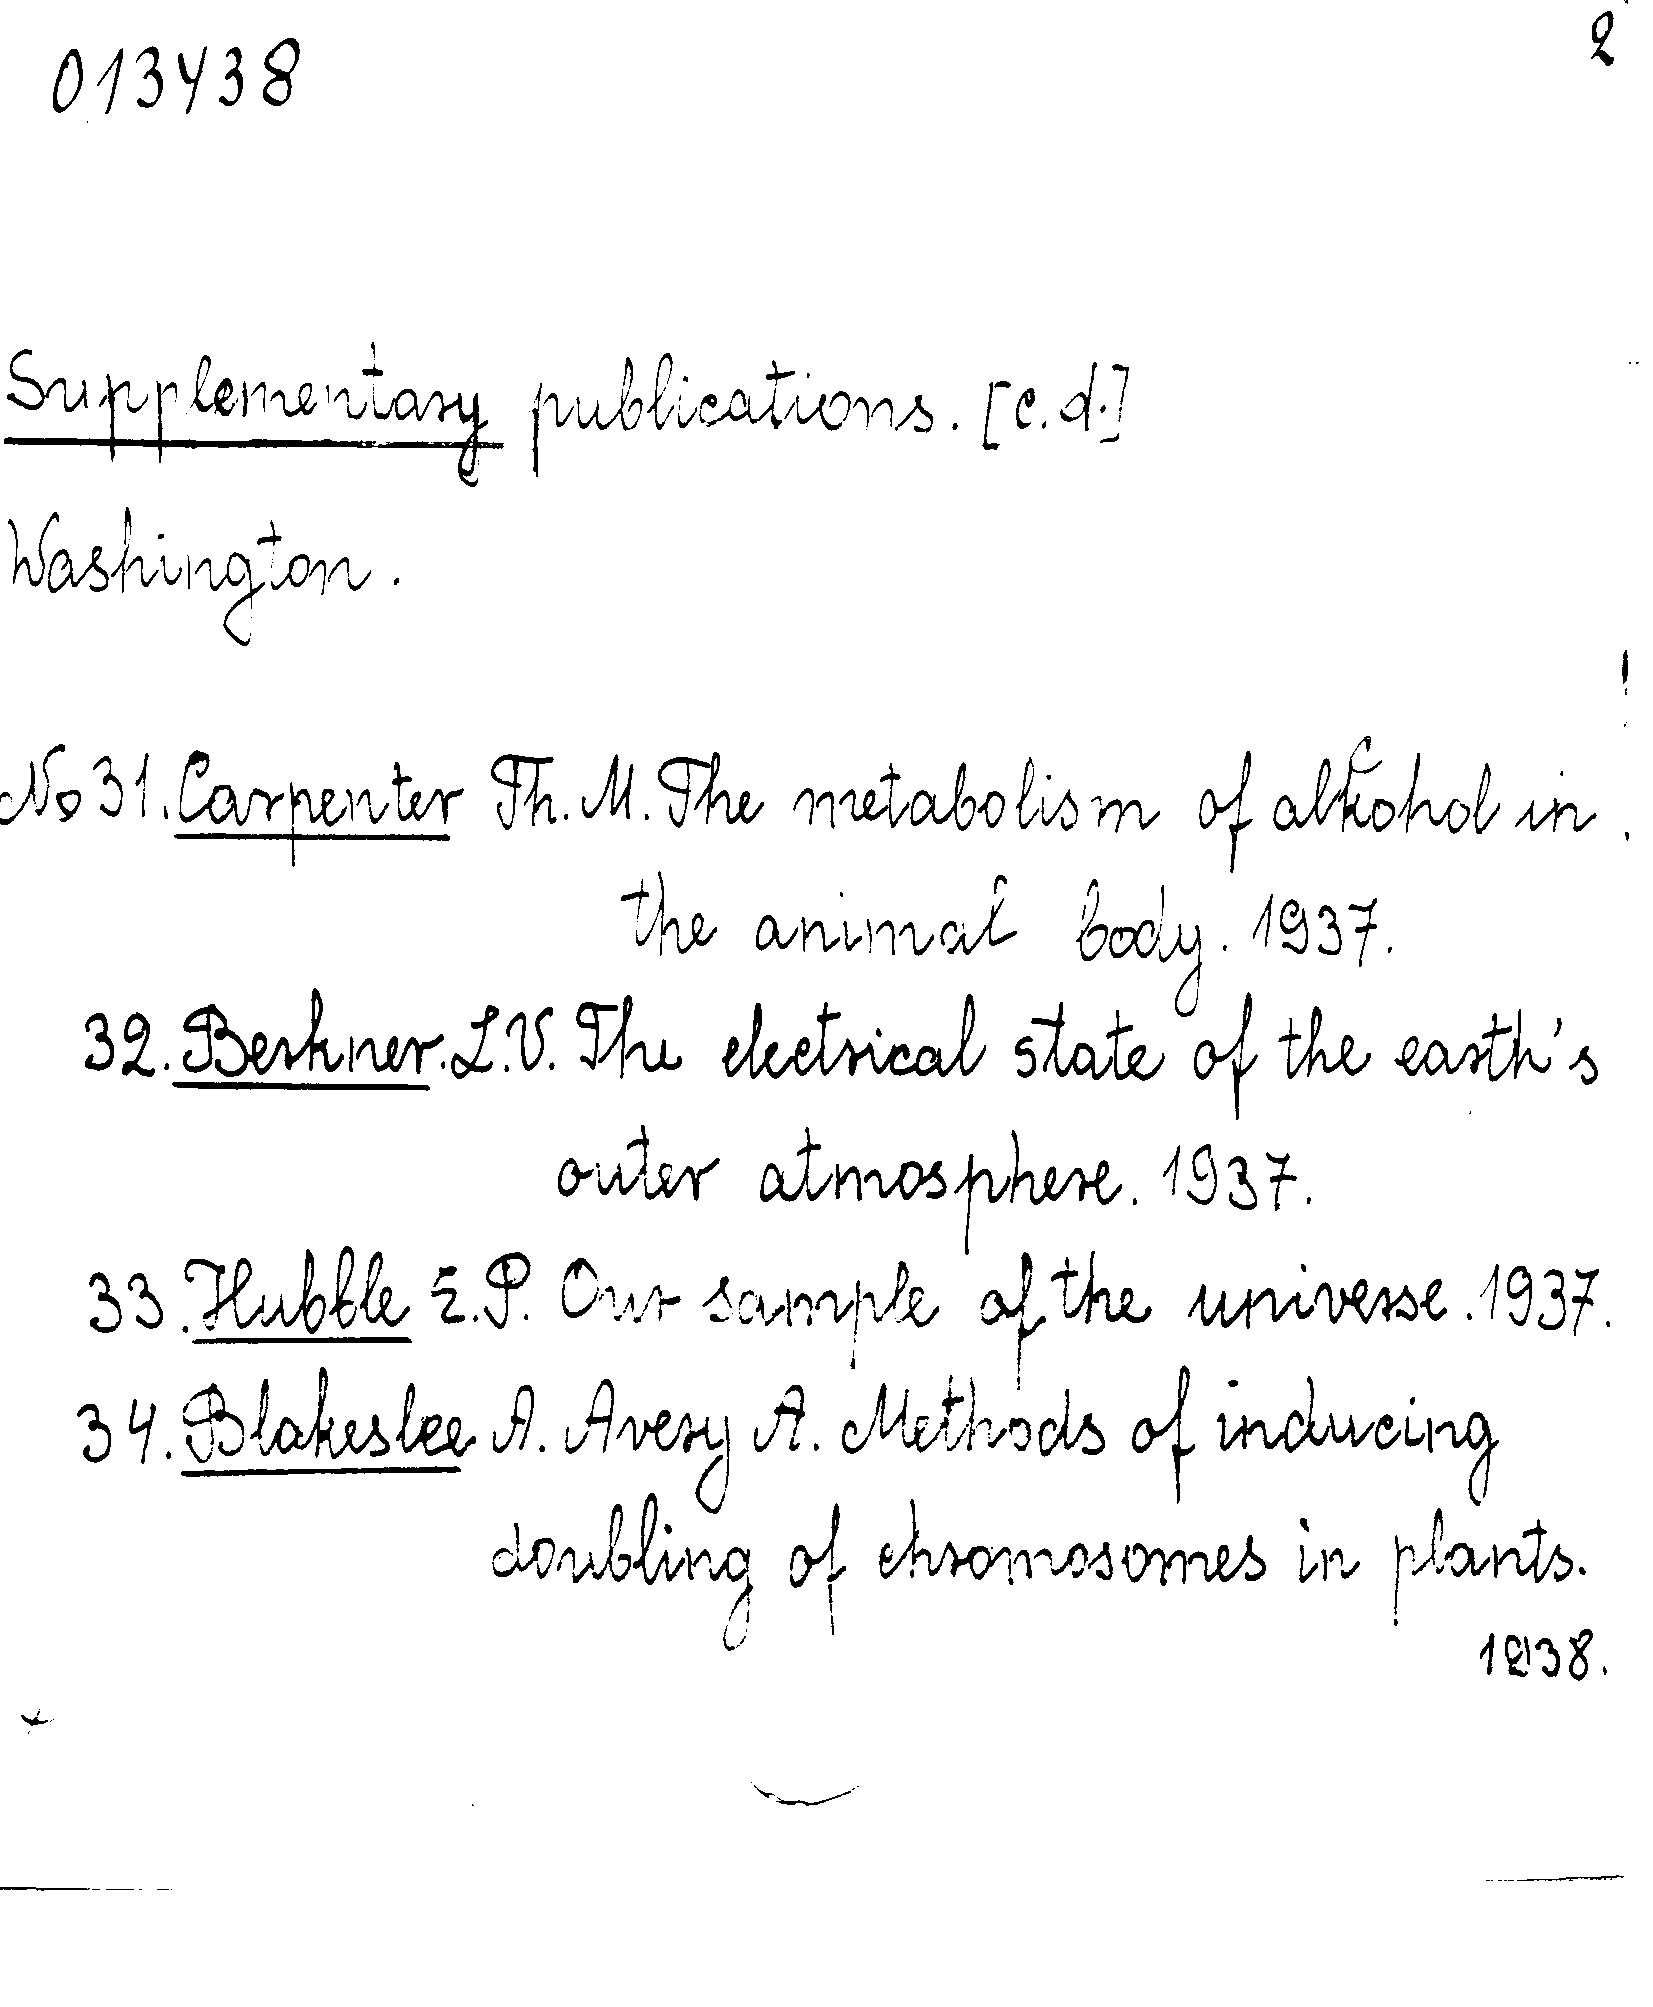 013438
2
Supplementary publications. [c.d.]
Washington.
No 31. Carpenter Th. M. The metabolism of alkohol in
the animal body. 1937.
32. Berkner. L.V. The electrical state of the earth's
outer atmosphere. 1937.
33. Hubble E.P. Our sample of the universe. 1937.
34. Blakeslee A. Avery A. Methods of inducing
doubling of chromosomes in plants.
1938.